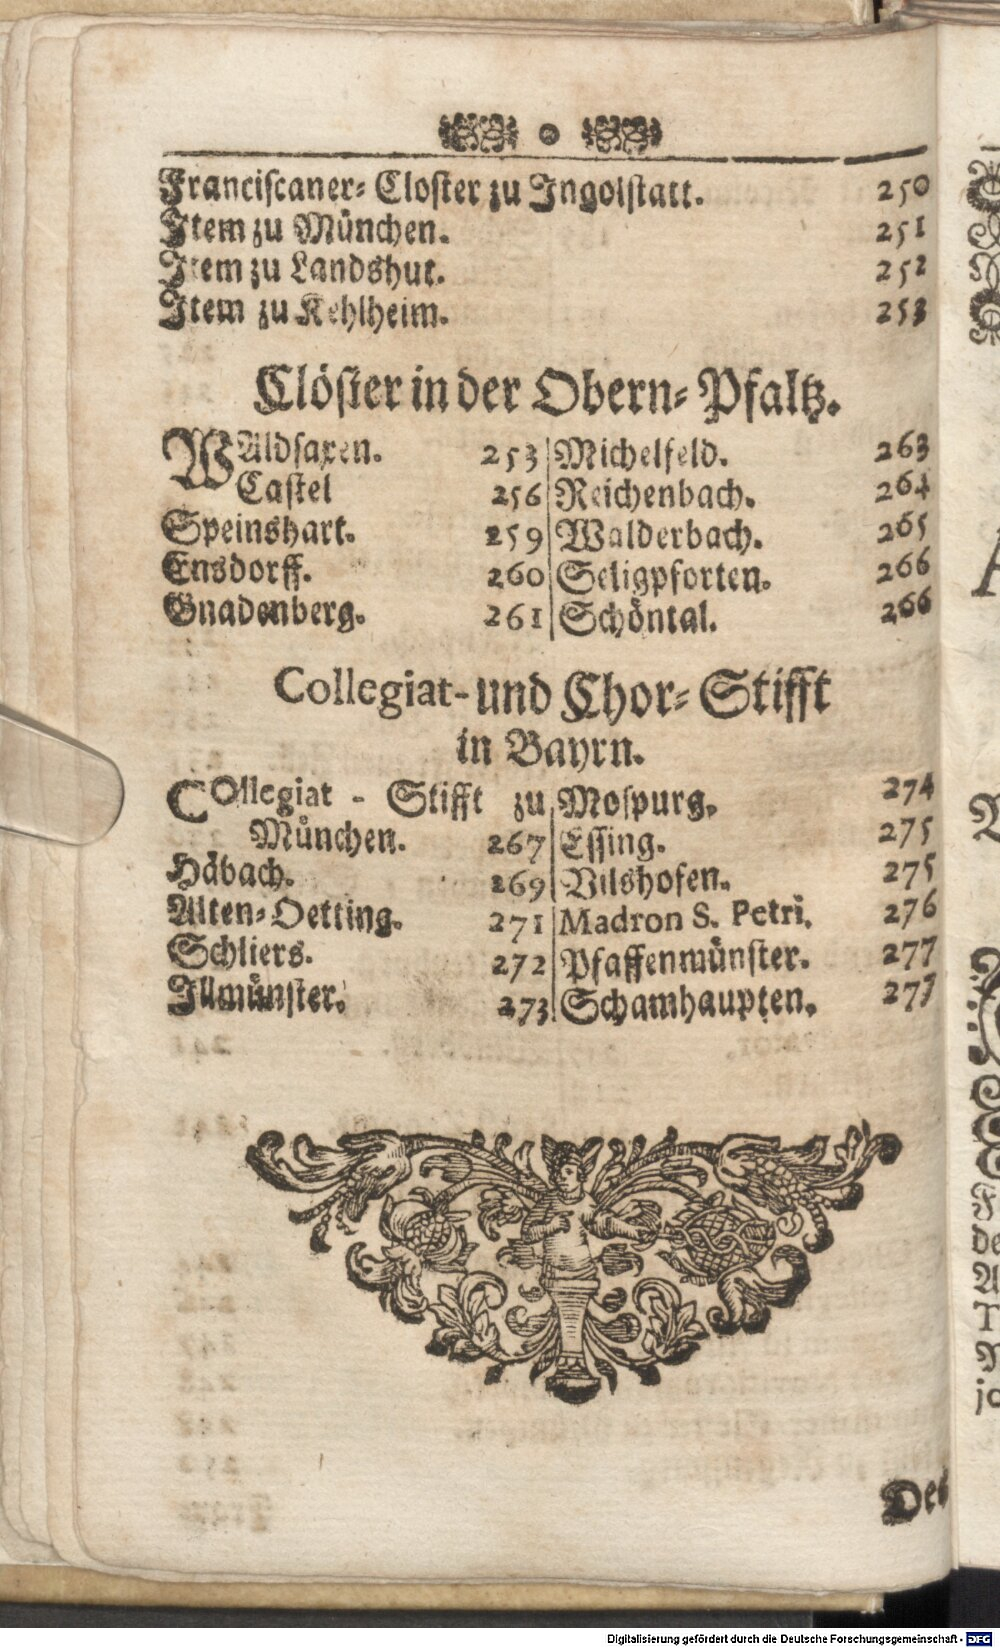 Franciscaner-Closter zu Ingolstatt. 250
Item zu München. 251
Item zu Landshut. 252
Item zu Kehlheim. 253
Clöster in der Obern-Pfaltz.
WAldsaxen. 253
Castel 256
Speinshart. 259
Ensdorff. 260
Gnadenberg. 261
Michelfeld. 263
Reichenbach. 264
Walderbach. 265
Seligpforten. 266
Schöntal. 266
Collegiat- und Chor-Stifft
in Bayrn.
COllegiat - Stifft zu
München. 267
Häbach. 269
Alten-Oetting. 271
Schliers. 272
Illmünster. 273
Mospurg. 274
Essing. 275
Vilshofen. 275
Madron S. Petri. 276
Pfaffenmünster. 277
Schamhaupten. 277
Digitalisierung gefördert durch die Deutsche Forschungsgemeinschaft - DFG